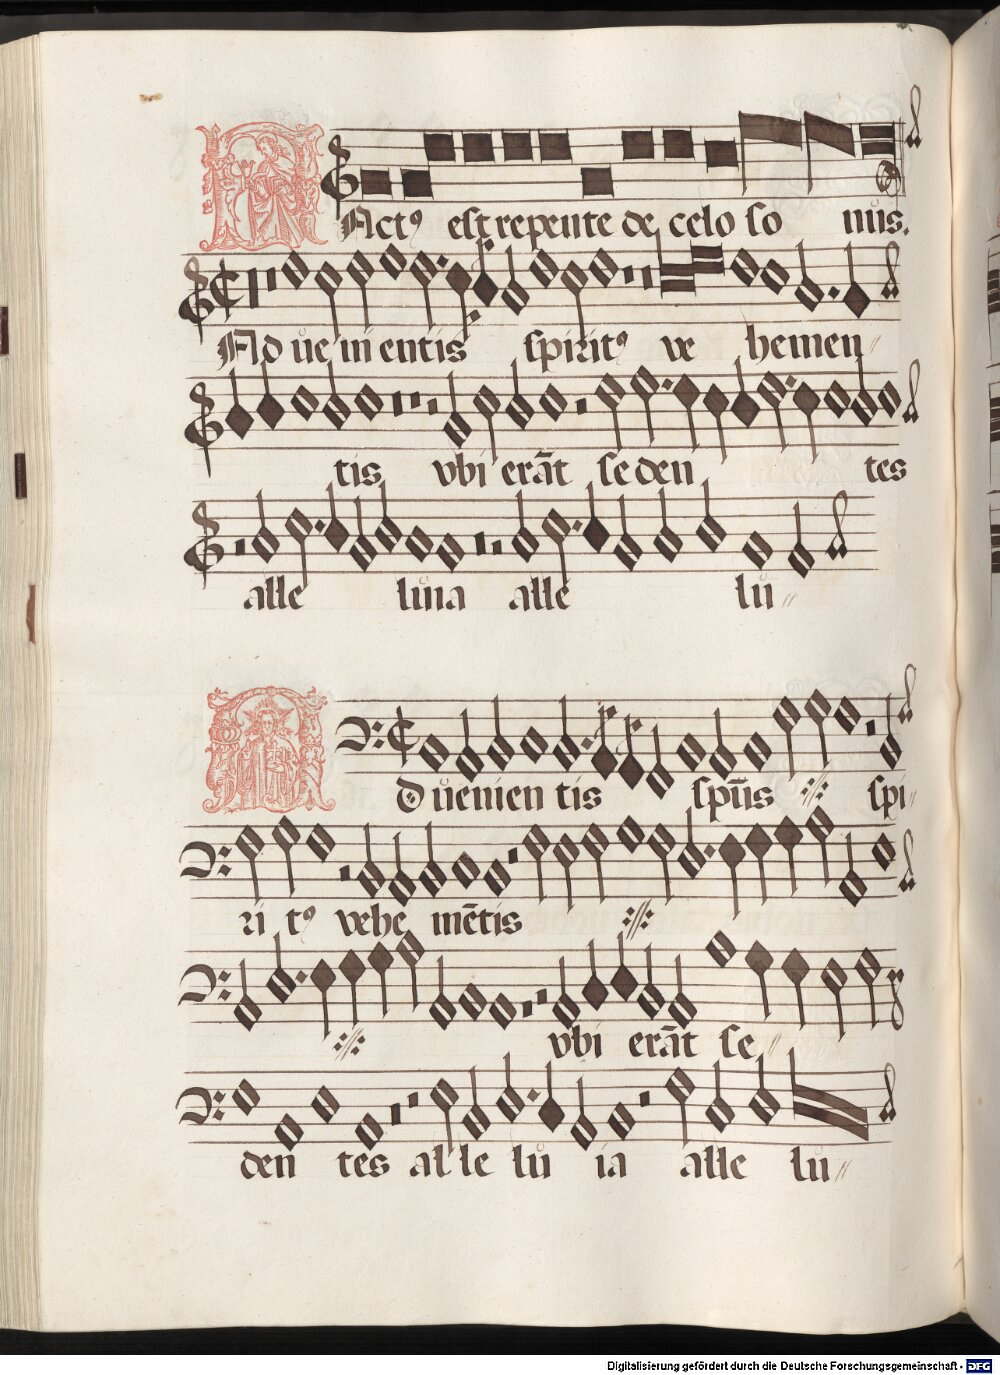 FActꝰ est repente de celo so nus.
Adůeni entis spiritꝰ ve hemen〃
tis vbi erāt seden tes
alle lůia alle lu〃
Aduenien tis spūs ⁒ spi〃
ri tꝰ vehe mētis ⁒
⁒ vbi erāt se〃
den tes alle lů ia alle lu〃
Digitalisierung gefördert durch die Deutsche Forschungsgemeinschaft - DFG